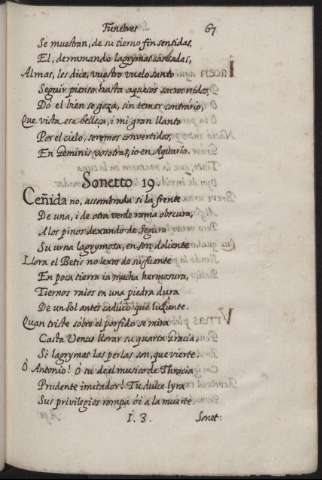 Funebres 67
Se muestran, de su tierno fin sentidas,
El, derramando lagrymas
Almas, les dice, vuestro vuelo santo
Seguir pienso hasta aquesos sacros nidos,
Dó el bien se goza, sin temer contrario,
Que vista esa belleza, i mi gran llanto
Por el cielo, seremos convertidos,
En Geminis vosotras, io en Aquario.
Sonetto 19
Ceñida no, assombrada si la frente
De una, i de otra verde rama obscura,
A los pinos dexando de Segura
Su urna lagrymosa, en son doliente
Llora el Betis no lexos de su fuente
En poca tierra ia mucha hermosura,
Tiernos raios en una piedra dura
De un Sol antes caduco, que luziente.
Quan triste sobre el porfido se mira
Casta Venus llorar su quarta Gracia,
Si lagrymas las perlas son, que vierte!
O Antonio! O tu del musico de Thracia
Prudente imitador! Tu dulce lyra
Sus privilegios rompa ôi a la muerte.
I. 3. Sonet: